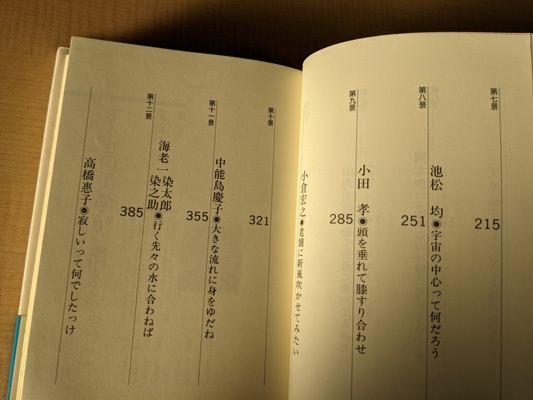 第七景
215
池松 均◉宇宙の中心って何だろう
第八景
251
小田 孝◉頭を垂れて膝すり合わせ
第九景
285
小倉宏之◉老舗に新風吹かせてみたい
第十景
321
中能島慶子◉大きな流れに身をゆだね
第十一景
355
海老一染太郎
染之助◉行く先々の水に合わねば
第十二景
385
高橋恵子◉寂しいって何でしたっけ